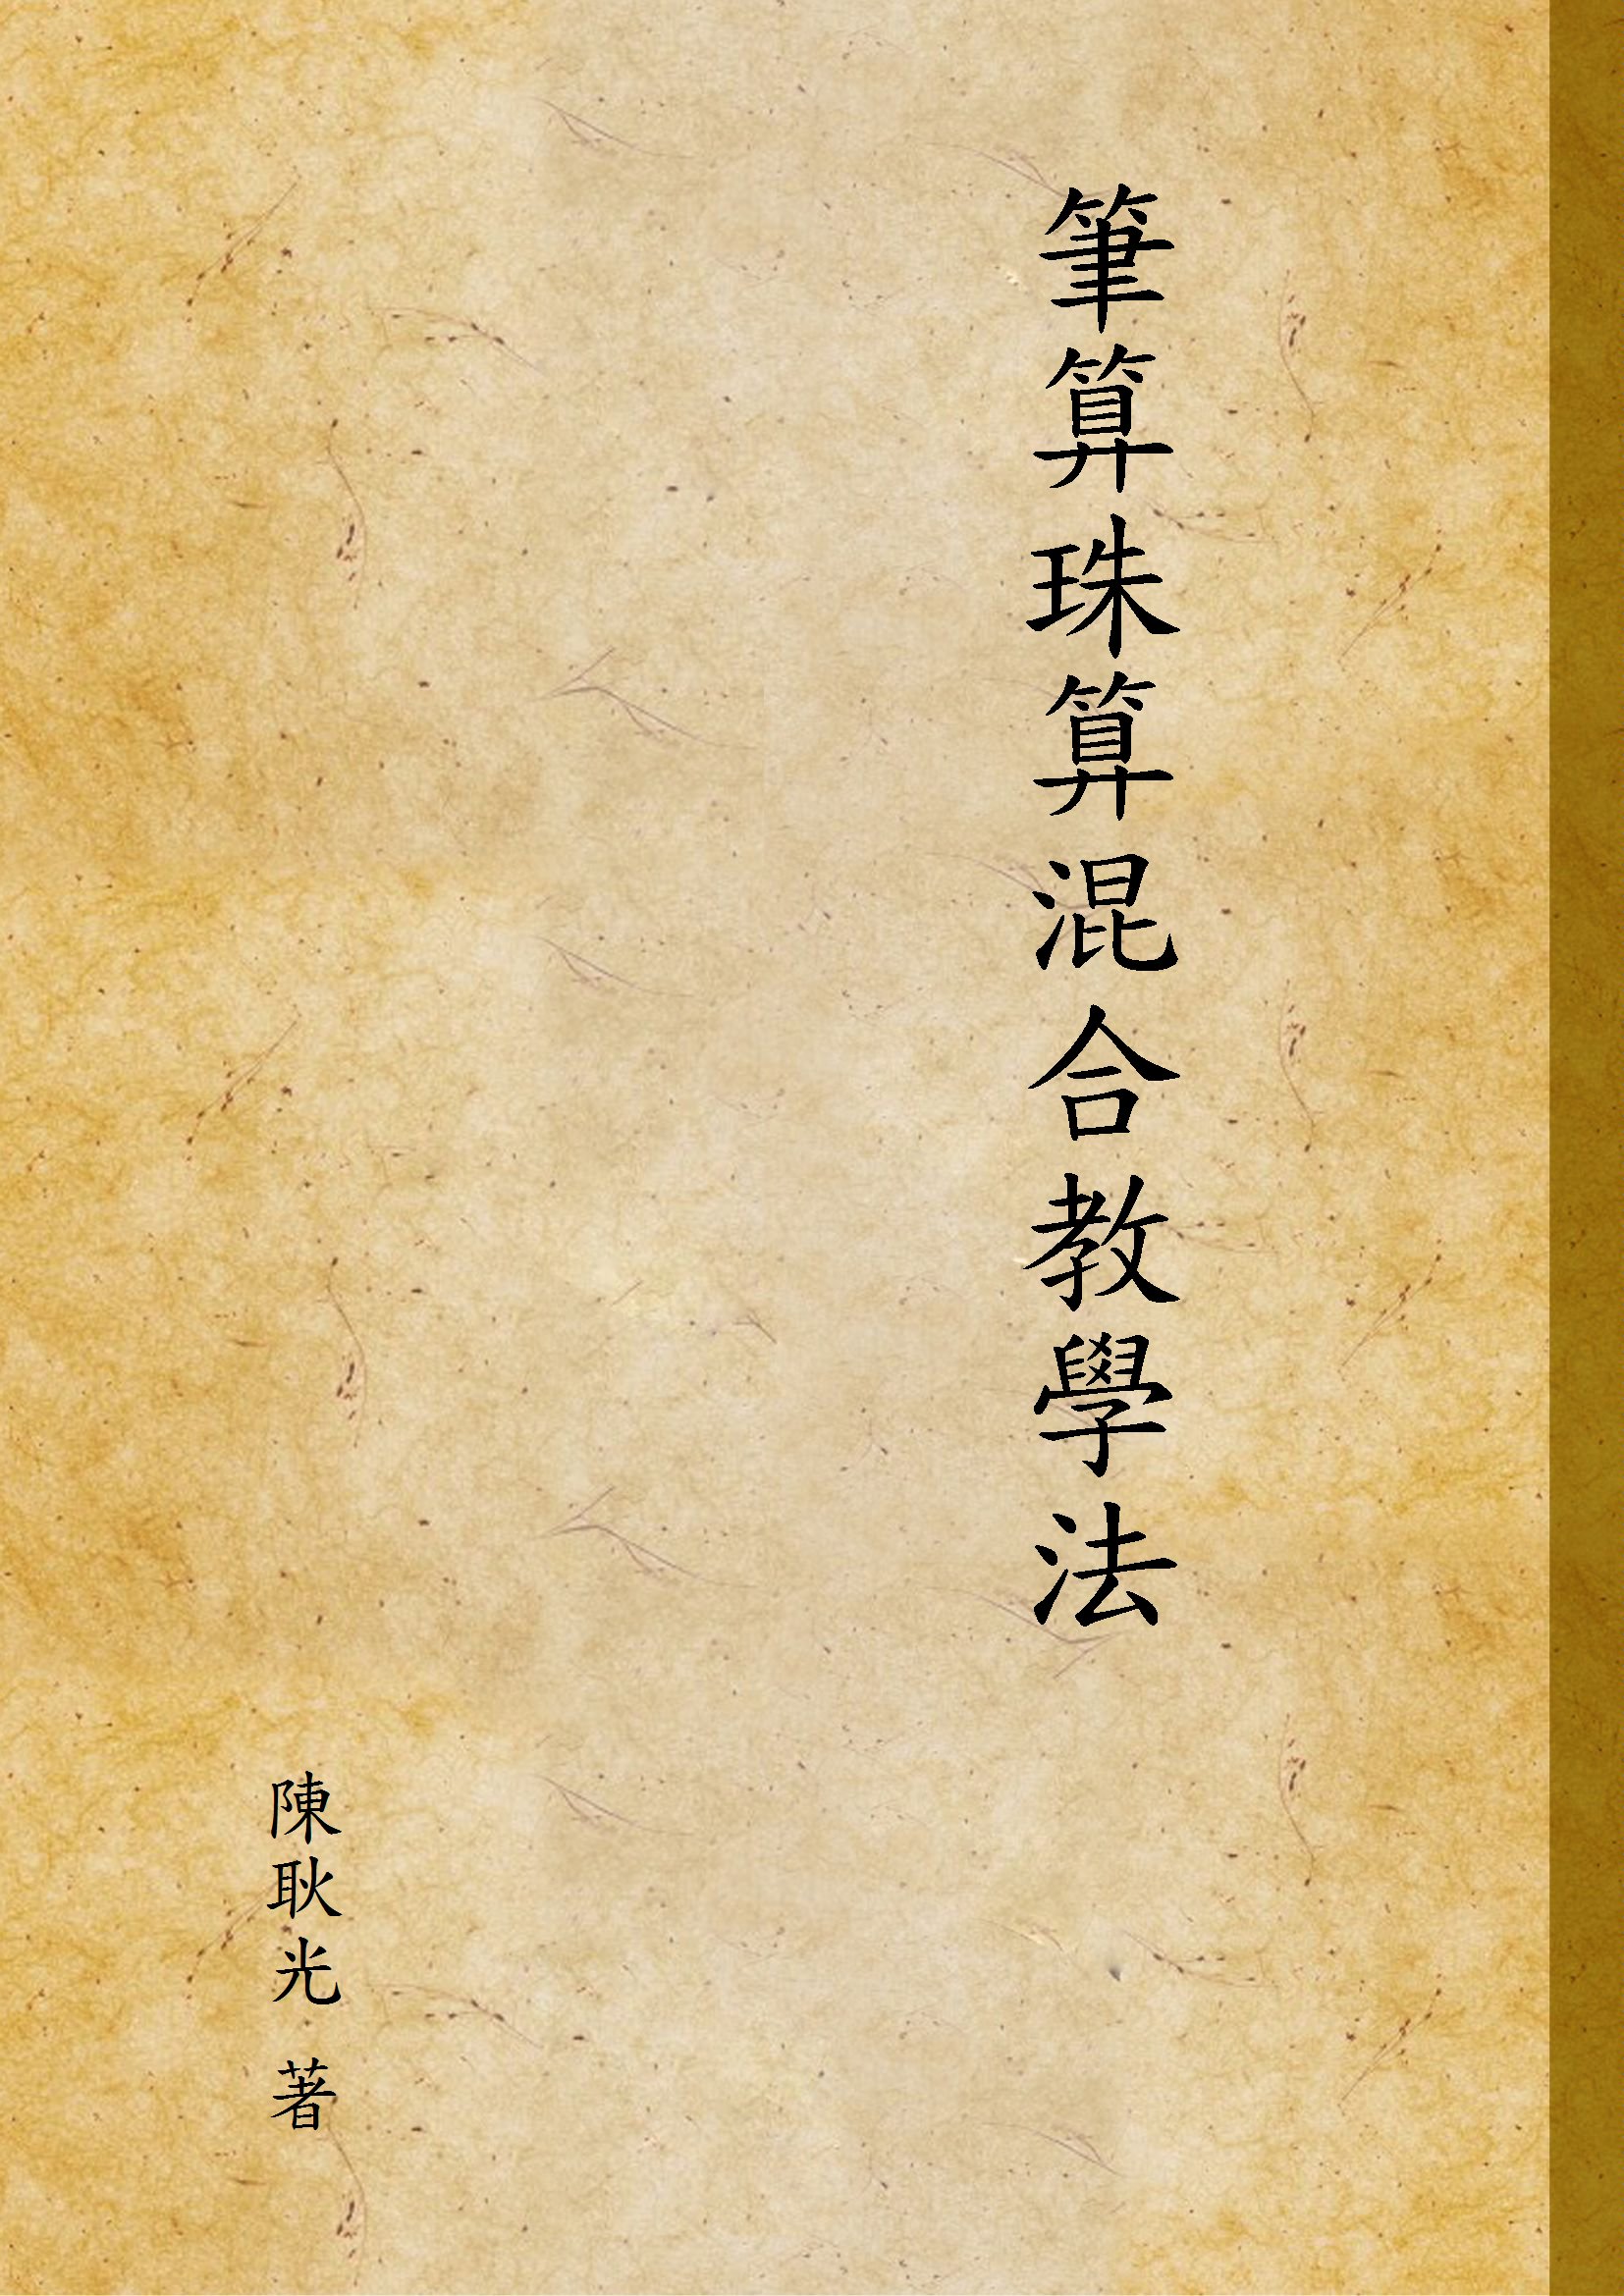 筆算珠算混合教學法
陳耿光 著